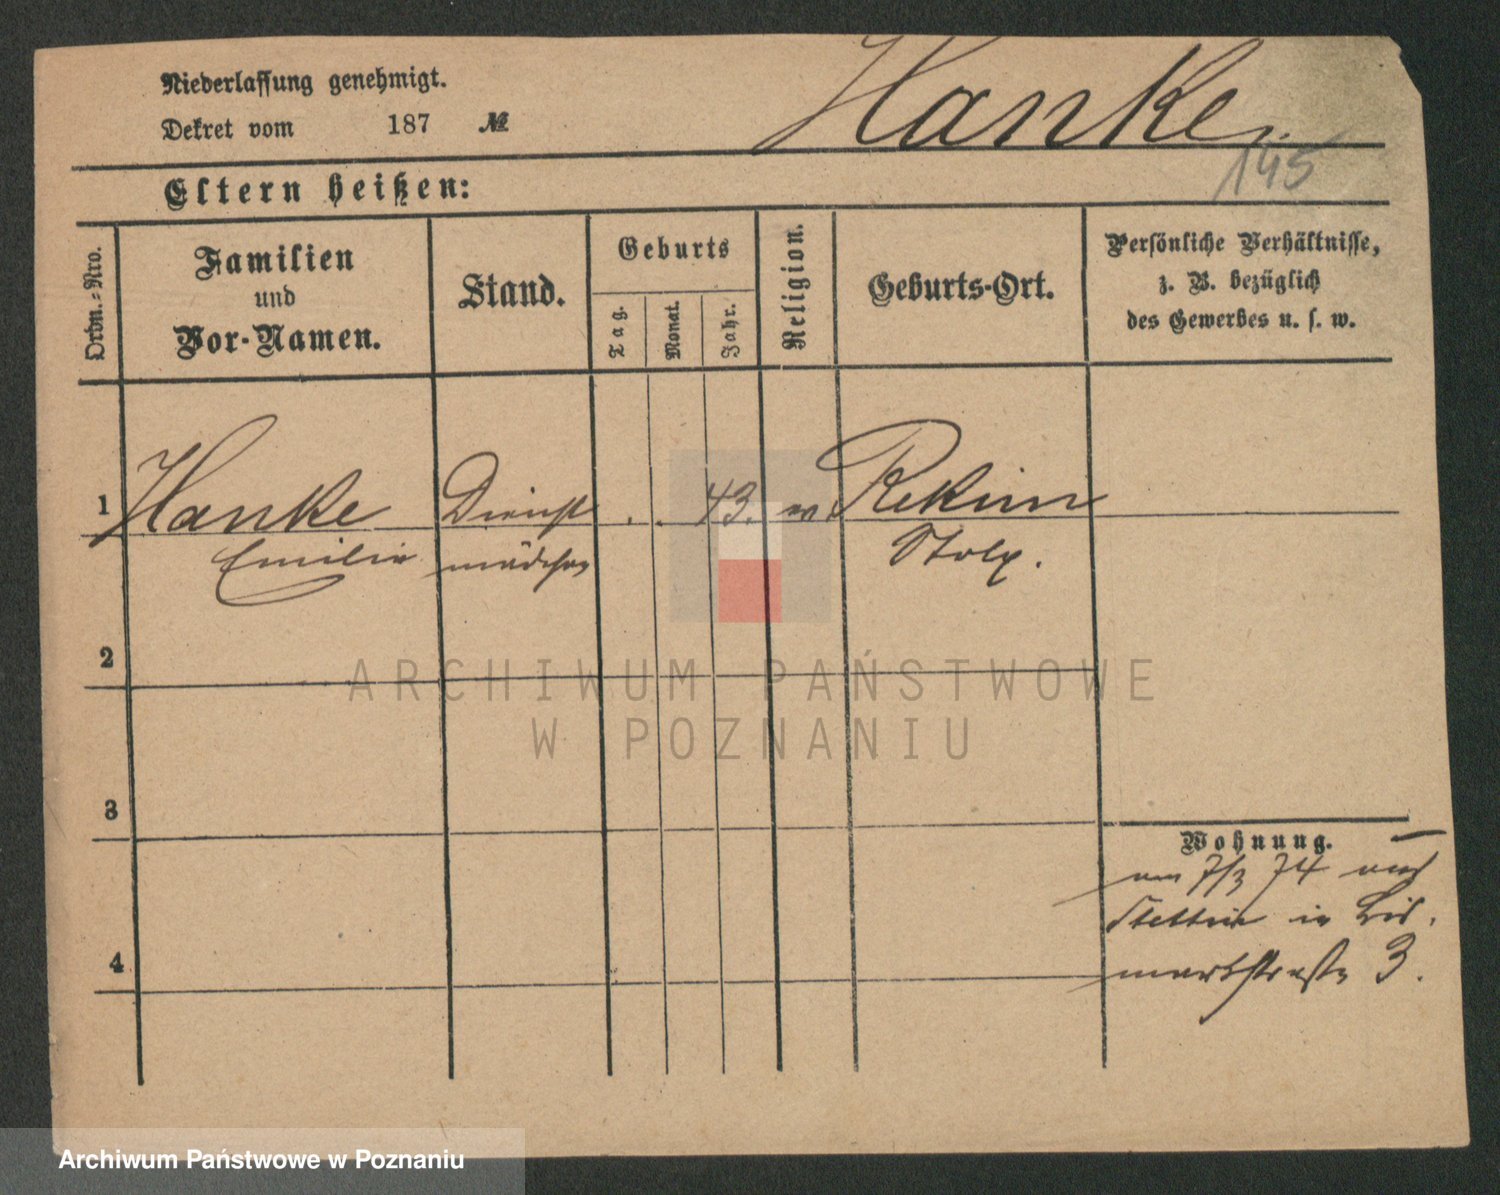 Niederlassung genehmigt.
Hanke.
Dekret vom 187 №
145
Eltern heißen:
Ordn.-Nro.
Familien
und
Vor-Namen.
Stand.
Geburts
Tag.
Monat.
Jahr.
Religion.
Geburts-Ort.
Persönliche Verhältnisse,
z. B. bezüglich
des Gewerbes u. s. w.
1 Hanke Dienst . . 43. Rekim
Emilie mädchen Stolp.
2
3
Wohnung.
am 7/3 74 aus
Stettin in Bis.
4
markstraße 3.
ARCHIWUM PAŃSTWOWE
W POZNANIU
Archiwum Państwowe w Poznaniu